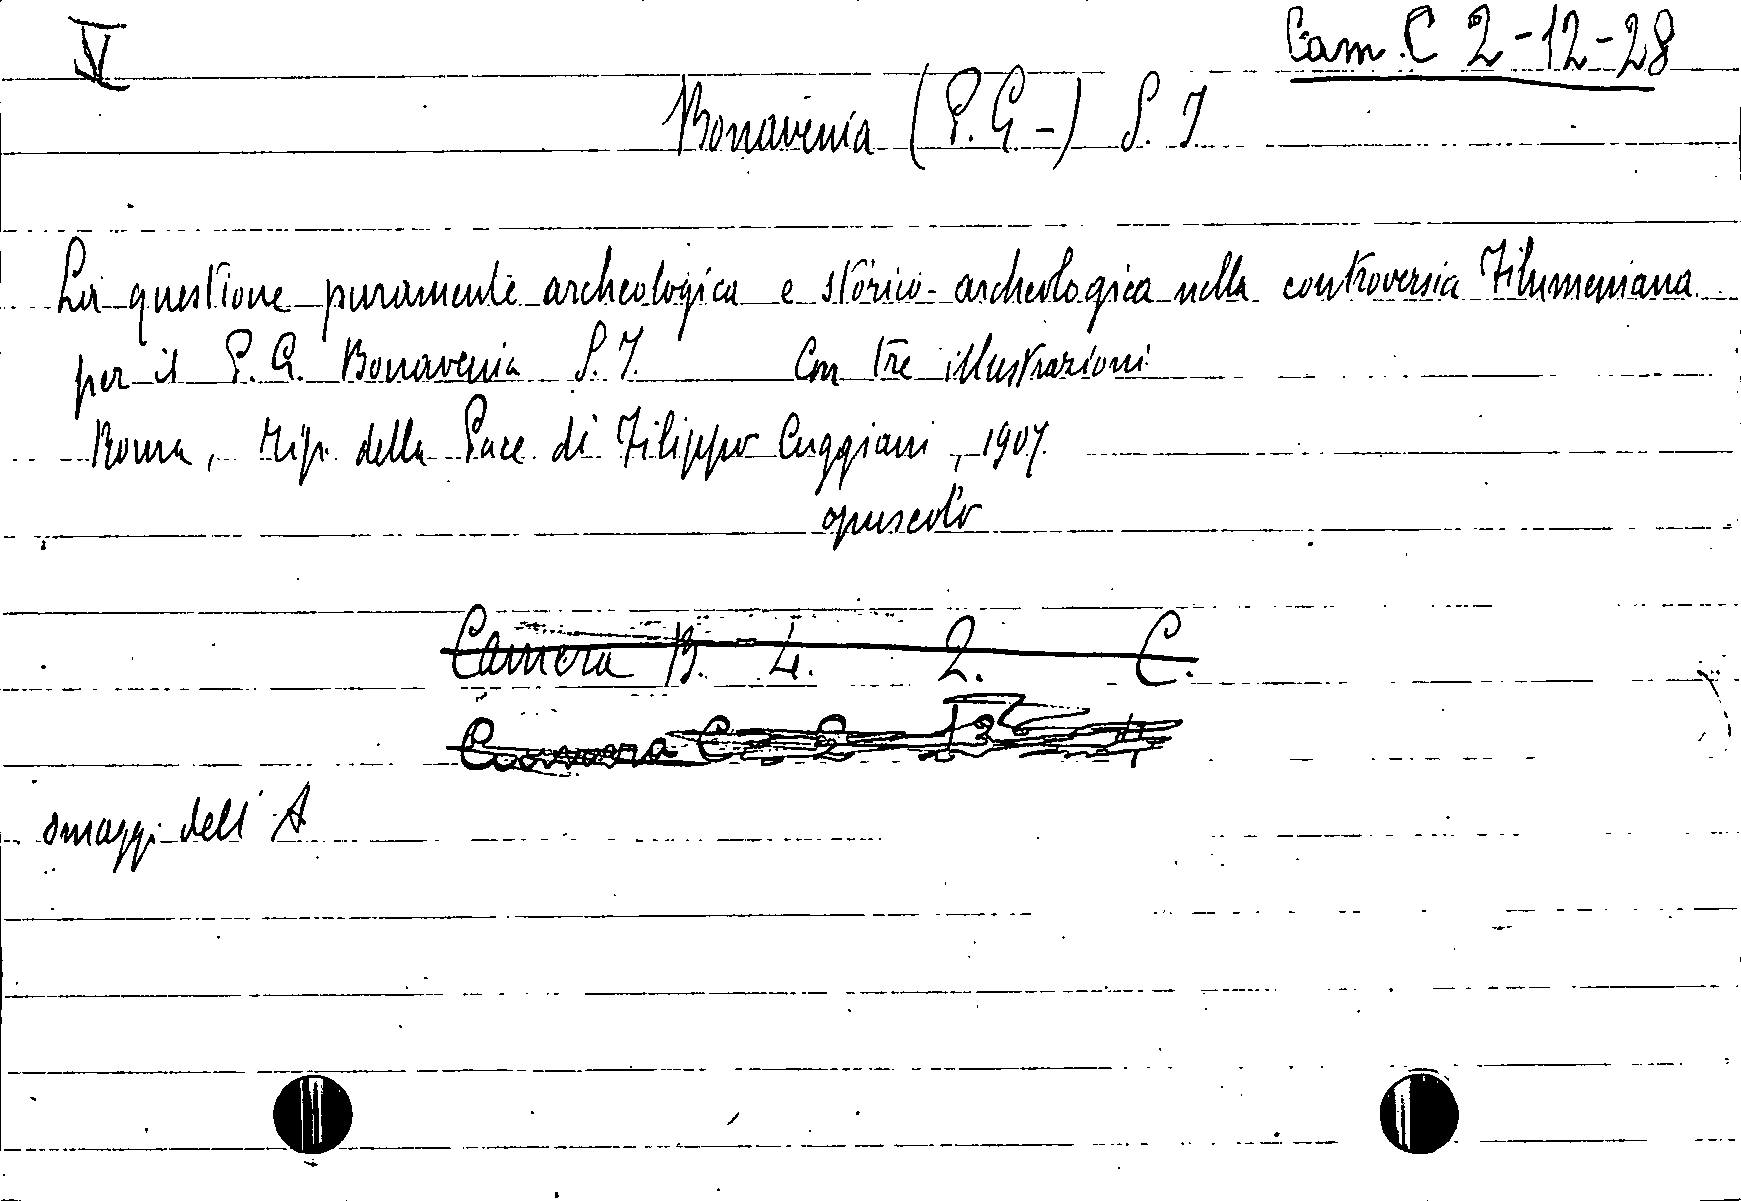 V
Cam. C 2-12-28
Bonavenia (P. G.-) S. J.
La questione puramente archeologica e storico-archeologica nella controversia Filumeniana
per il P. G. Bonavenia S. J. Con tre illustrazioni
Roma, tip. della Pace di Filippo Cuggiani, 1907.
opuscolo
Camera B. 4. 2. C.
Camera C. 2 13 4
omaggi dell'A.